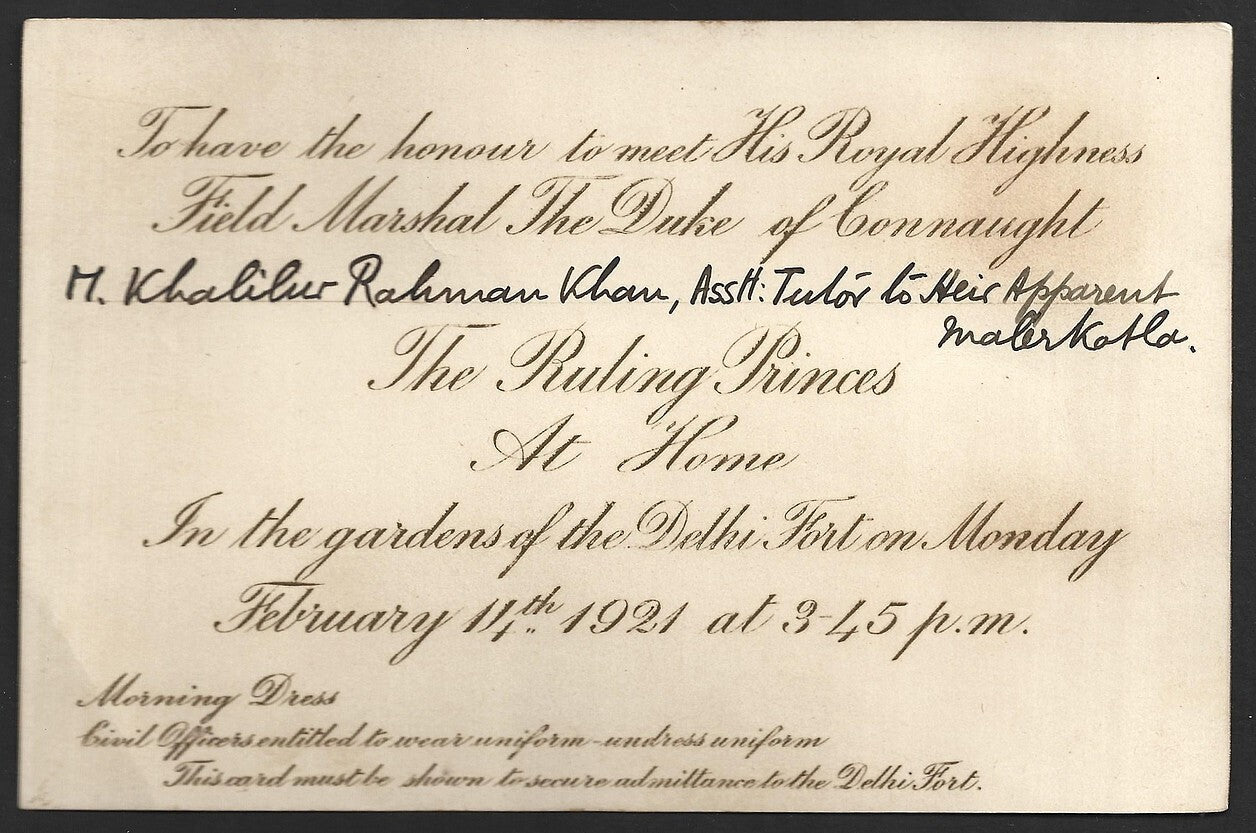 To have the honour to meet His Royal Highness
Field Marshal The Duke of Connaught
M. Khalilur Rahman Khan, Asstt: Tutor to Heir Apparent
Malerkotla.
The Ruling Princes
At Home
In the gardens of the Delhi Fort on Monday
February 14th 1921 at 3-45 p.m.
Morning Dress
Civil Officers entitled to wear uniform - undress uniform
This card must be shown to secure admittance to the Delhi Fort.